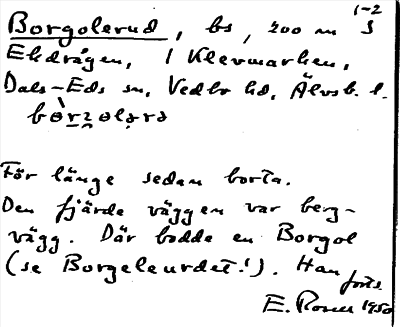 1-2
Borgolerud, bs, 200 m S
Ekdrågen, i Klevmarken,
Dals-Eds sn, Vedbo hd, Älvsb. l.
För länge sedan borta.
Den fjärde väggen var berg-
vägg. Där bodde en Borgol
(se Borgeleurdet!). Han
forts.
E. Rosell 1950